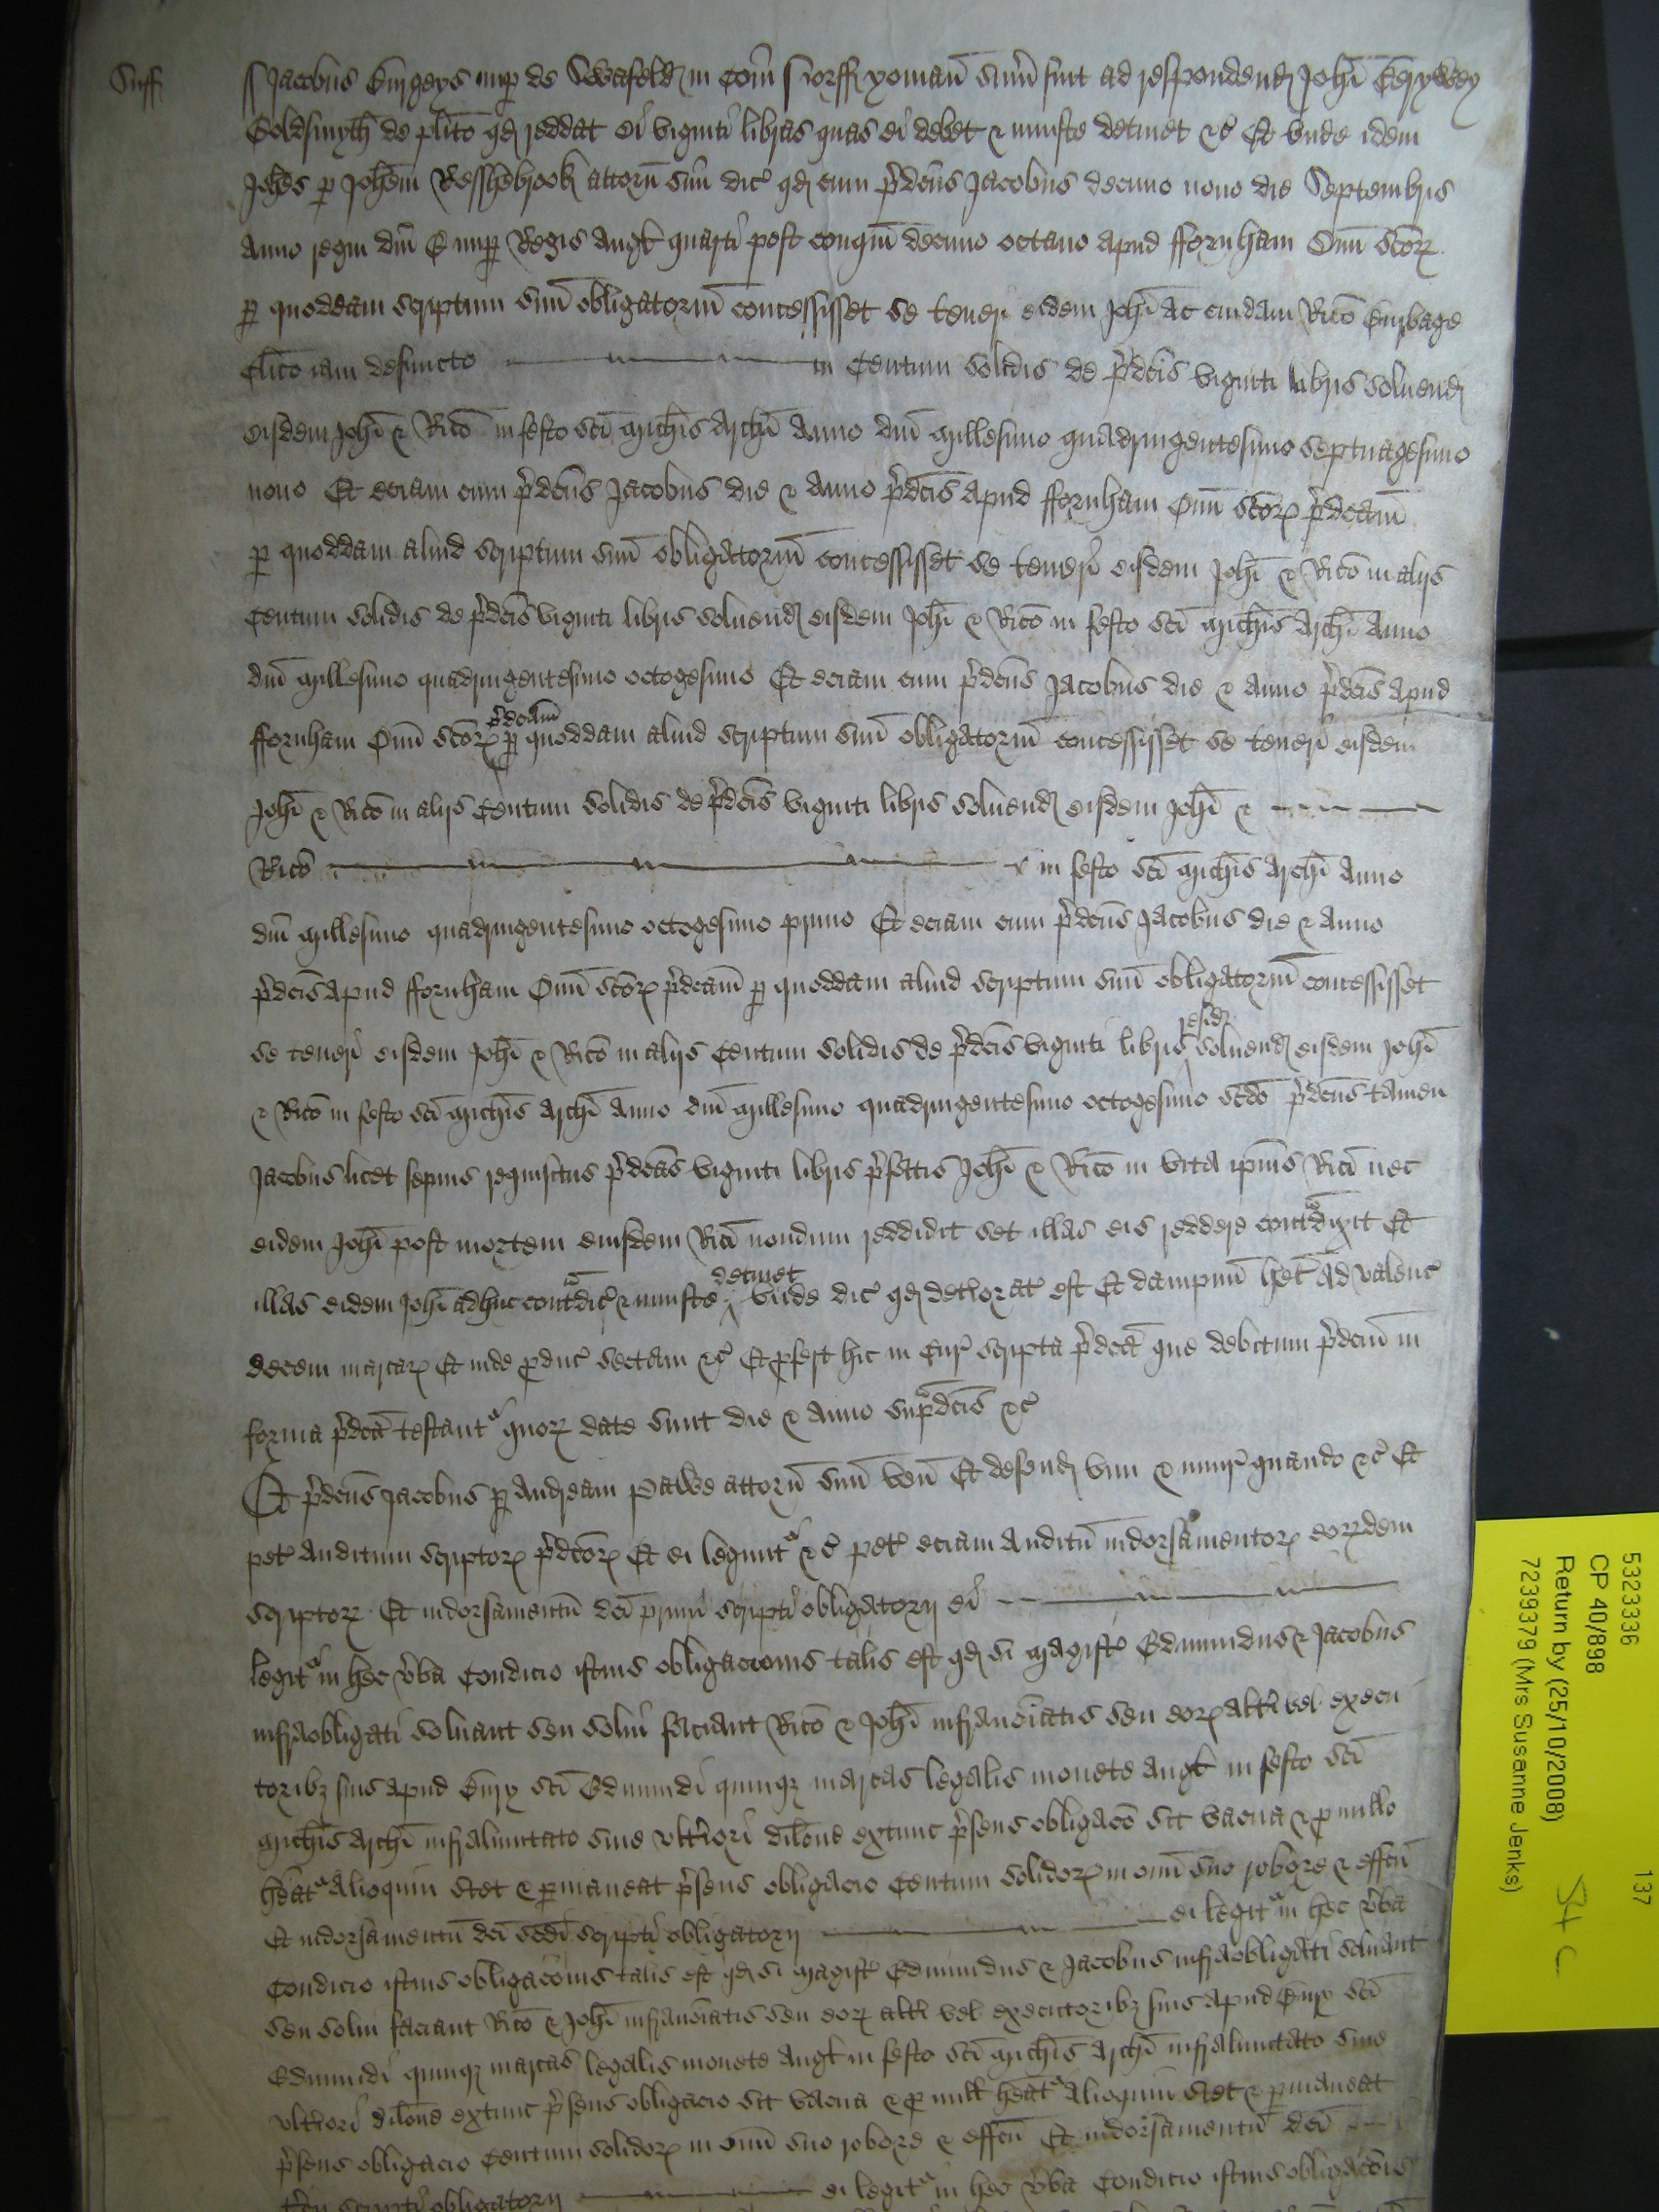 Suff
Jacobus Burgeys nup de Swafeld in Com Norff yoman sum fuit ad respondend Johi
Goldsmyth de plito qd reddat ei viginti libras quas ei debet & iniuste detinet &c Et unde idem
Johes p Johem Resshebrook attorn suu dic qd cum pdcus Jacobus decimo nono die Septembris
Anno regni dni E nup Regis Angl quarti post conqm decimo octavo apud ffornham Omi Scor
p quoddam scriptum suu obligatoriu concessisset se teneri eidem Johi ac cuidam Rico Burbage
Clico iam defuncto in Centum solidis de pdcis viginti libris solvend
eisdem Johi & Rico in festo sci Michis Archi Anno dni Millesimo quadringentesimo septuagesimo
nono Et eciam cum pdcus Jacobus die & Anno pdcis apud ffornham Omi Scor pdcam
p quoddam aliud scriptum suu obligatoriu concessisset se teneri eisdem Johi & Rico in alijs
Centum solidis de pdcis viginti libris solvend eisdem Johi & Rico in festo sci Michis Archi Anno
dni Millesimo quadringentesimo octogesimo Et eciam cum pdcus Jacobus die & Anno pdcis apud
ffornham Omi Scor pdcam p quoddam aliud scriptum suu obligatoriu concessisset se teneri eisdem
Johi & Rico in alijs Centum solidis de pdcis viginti libris solvend eisdem Johi &
Rico in festo sci Michis Archi Anno
dni Millesimo quadringentesimo octogesimo primo Et eciam cum pdcus Jacobus die & Anno
pdcis apud ffornham Omi Scor pdcam p quoddam aliud scriptum suu obligatoriu concessisset
se teneri eisdem Johi & Rico in alijs Centum solidis de pdcis viginti libris resid solvend eisdem Johi
& Rico in festo sci Michis Archi Anno dni Millesimo quadringentesimo octogesimo scdo pdcus tamen
Jacobus licet sepius requisitus pdcas viginti libris pfatis Johi & Rico in vita ipius Rici nec
eidem Johi post mortem eiusdem Rici nondum reddidit set illas eis reddere contadixit Et
illas eidem Johi adhuc contadic & iniuste detinet unde dic qd deterorat est Et dampnu het ad valenc
decem marcar Et inde pduc sectam &c Et pfert hic in Cur scripta pdca que debitum pdcum in
forma pdca testant quor date sunt die & Anno supadcis &c
Et pdcus Jacobus p Andream Palve attorn suu ven Et defend vim & iniur quando &c Et
pet auditum scriptor pdcor Et ei legunt &c pet eciam auditu indorsamentor eordem
scriptor Et indorsamentu dci primi scripti obligatorij ei
legit in hec vba Condicio istius obligacionis talis est qd si Magist Edmundus & Jacobus
infraobligati solvant seu solvi faciant Rico & Johi infranoiatis seu eor alti vel execu
toribz suis apud Bury sci Edmundi quinqz marcas legalis monete Angl in festo sci
Michis Archi infralimitato sine ulteriori dilone extunc psens obligaco sit vacua & p nullo
heat Alioquin stet & pmaneat psens obligacio Centum solidor in omi suo robore & effcu
Et indorsamentu dci scdi scripti obligatorij ei legit in hec vba
Condicio istius obligacois talis est qd si Magist Edmundus & Jacobus infraobligati solvant
seu solvi faciant Rico & Johi infranoiatis seu eor alti vel executoribz suis apud Bury sci
Edmundi quinqz marcas legalis monete Angl in festo sci Michis Archi infralimitato sine
ulteriori dilone extunc psens obligacio sit vacua & p null heat Alioquin stet & pmaneat
psens obligacio Centum solidor in omi suo robore & effcu Et indorsamentu dci
tcij scripti obligatorij ei legit in hec vba Condicio istius obligacois
5323336
CP 40/898
Return by (25/10/2008)
7239379 (Mrs Susanne Jenks)
137